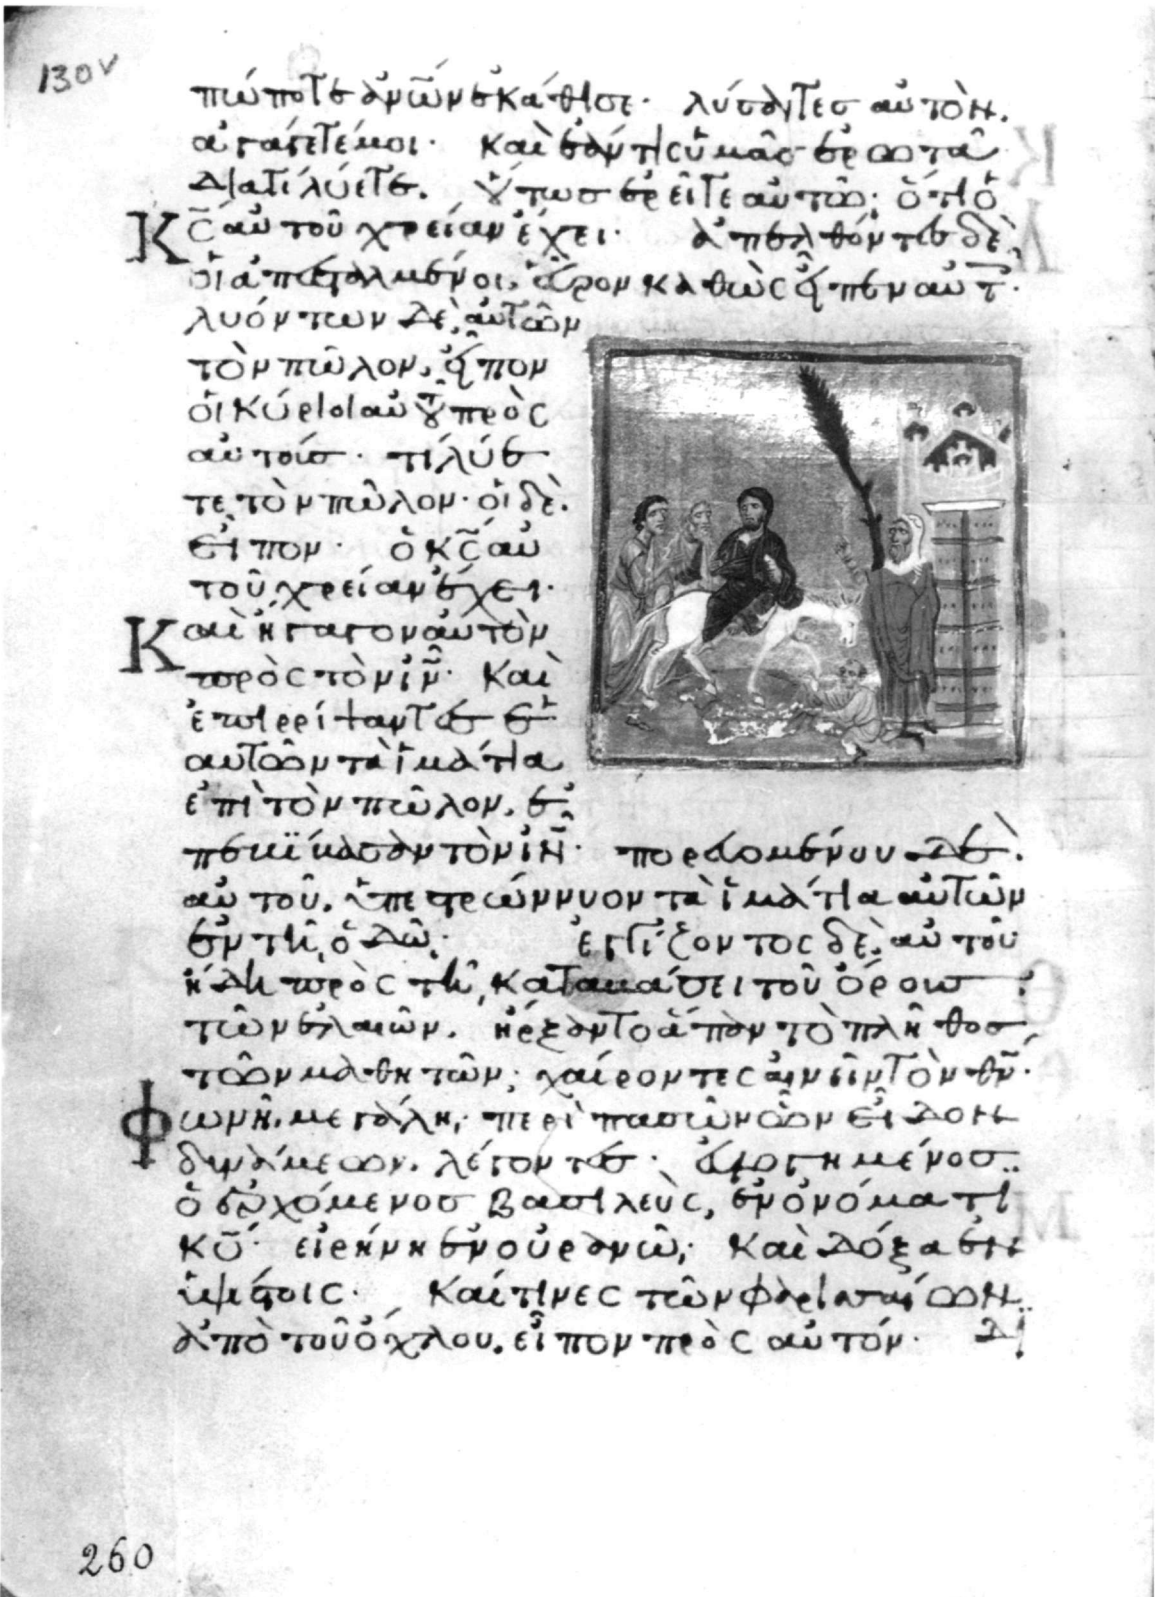 130v
πώποτε ἀν̅ω̅ν ἐκάθισε· λύσαντες αὐτὸν.
ἀγάγετέ μοι· καὶ ἐάν τις ὑμᾶς ἐρωτᾶ
διατί λύετε. οὕτως ἐρεῖτε αὐτῶ· ὅτι ὁ
κ̅ς̅ αὐτοῦ χρείαν ἔχει· ἀπελθόντες δὲ
οἱ ἀπεσταλμένοι, εὗρον καθὼς εἶπεν αὐτ·
λυόντων δὲ αὐτῶν
τὸν πῶλον, εἶπον
οἱ κύριοι αὐτοῦ πρὸς
αὐτούς· τί λύε
τε τὸν πῶλον· οἱ δὲ.
εἶπον· ὁ κ̅ς̅ αὐ
τοῦ χρείαν ἔχει·
Καὶ ἤγαγον αὐτὸν
πρὸς τὸν ι̅ν̅· καὶ
ἐπιρρίψαντες ἑ
αυτῶν τὰ ἱμάτια
ἐπὶ τὸν πῶλον, ἐ
πεβίβασαν τὸν ι̅ν̅· πορευομένου δὲ
αὐτοῦ, ὑπεστρώννυον τὰ ἱμάτια αὐτῶν
ἐν τῆ ὁδῶ· ἐγγίζοντος δὲ αὐτοῦ
ἤδη πρὸς τῆ καταβάσει τοῦ ὄρους
τῶν ἐλαιῶν. ἤρξαντο ἅπαν τὸ πλῆθος
τῶν μαθητῶν, χαίροντες αἰνεῖν τὸν θ̅ν̅·
Φωνῆ μεγάλη, περὶ πασῶν ὧν εἶδον
δυνάμεων. λέγοντες· εὐλογημένος
ὁ ἐρχόμενος βασιλεὺς, ἐν ὀνόματι
κ̅υ̅· εἰρήνη ἐν οὐρανῶ, καὶ δόξα ἐν
ὑψίστοις· Καί τινες τῶν φαρισαίων
ἀπὸ τοῦ ὄχλου. εἶπον πρὸς αὐτόν· Δι
260